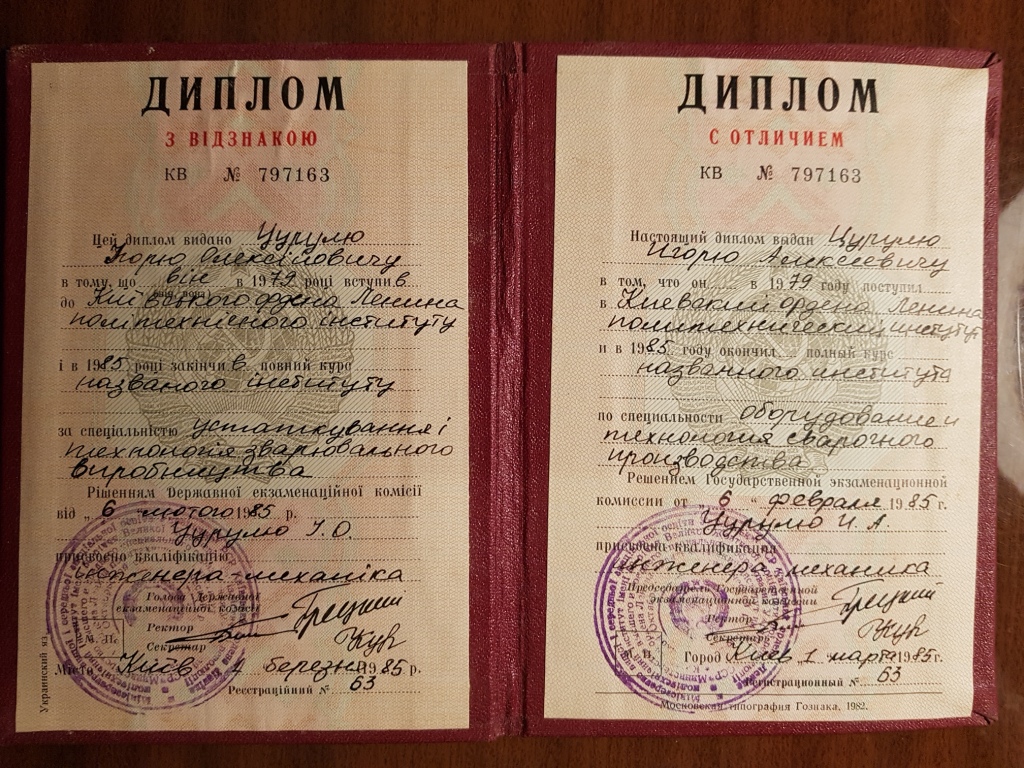 ДИПЛОМ
З ВІДЗНАКОЮ
КВ № 797163
Цей диплом видано Цурулю
Ігорю Олексійовичу
в тому, що він в 1979 році вступив
до Київського ордена Леніна
політехнічного інституту
і в 1985 році закінчив повний курс
названого інституту
за спеціальністю устаткування і
технологія зварювального
виробництва
Рішенням Державної екзаменаційної комісії
від „6 лютого 1985 р.
Цурулю І.О.
присвоєно кваліфікацію
інженера-механіка
Голова Державної
екзаменаційної комісії
Ректор
Секретар
М. П.
Місто Київ 1 березня 1985 р.
Реєстраційний № 63
Украинский яз
ДИПЛОМ
С ОТЛИЧИЕМ
КВ № 797163
Настоящий диплом выдан Цурулю
Игорю Алексеевичу
в том, что он в 1979 году поступил
в Киевский ордена Ленина
политехнический институт
и в 1985 году окончил полный курс
названного института
по специальности оборудование и
технология сварочного
производства
Решением Государственной экзаменационной
комиссии от „6“ февраля 1985 г.
Цурулю И. А.
присвоена квалификация
инженера-механика
Председатель Государственной
экзаменационной комиссии
Ректор
Секретарь
Город Киев 1 марта 1985 г.
Регистрационный № 63
Московская типография Гознака, 1982.